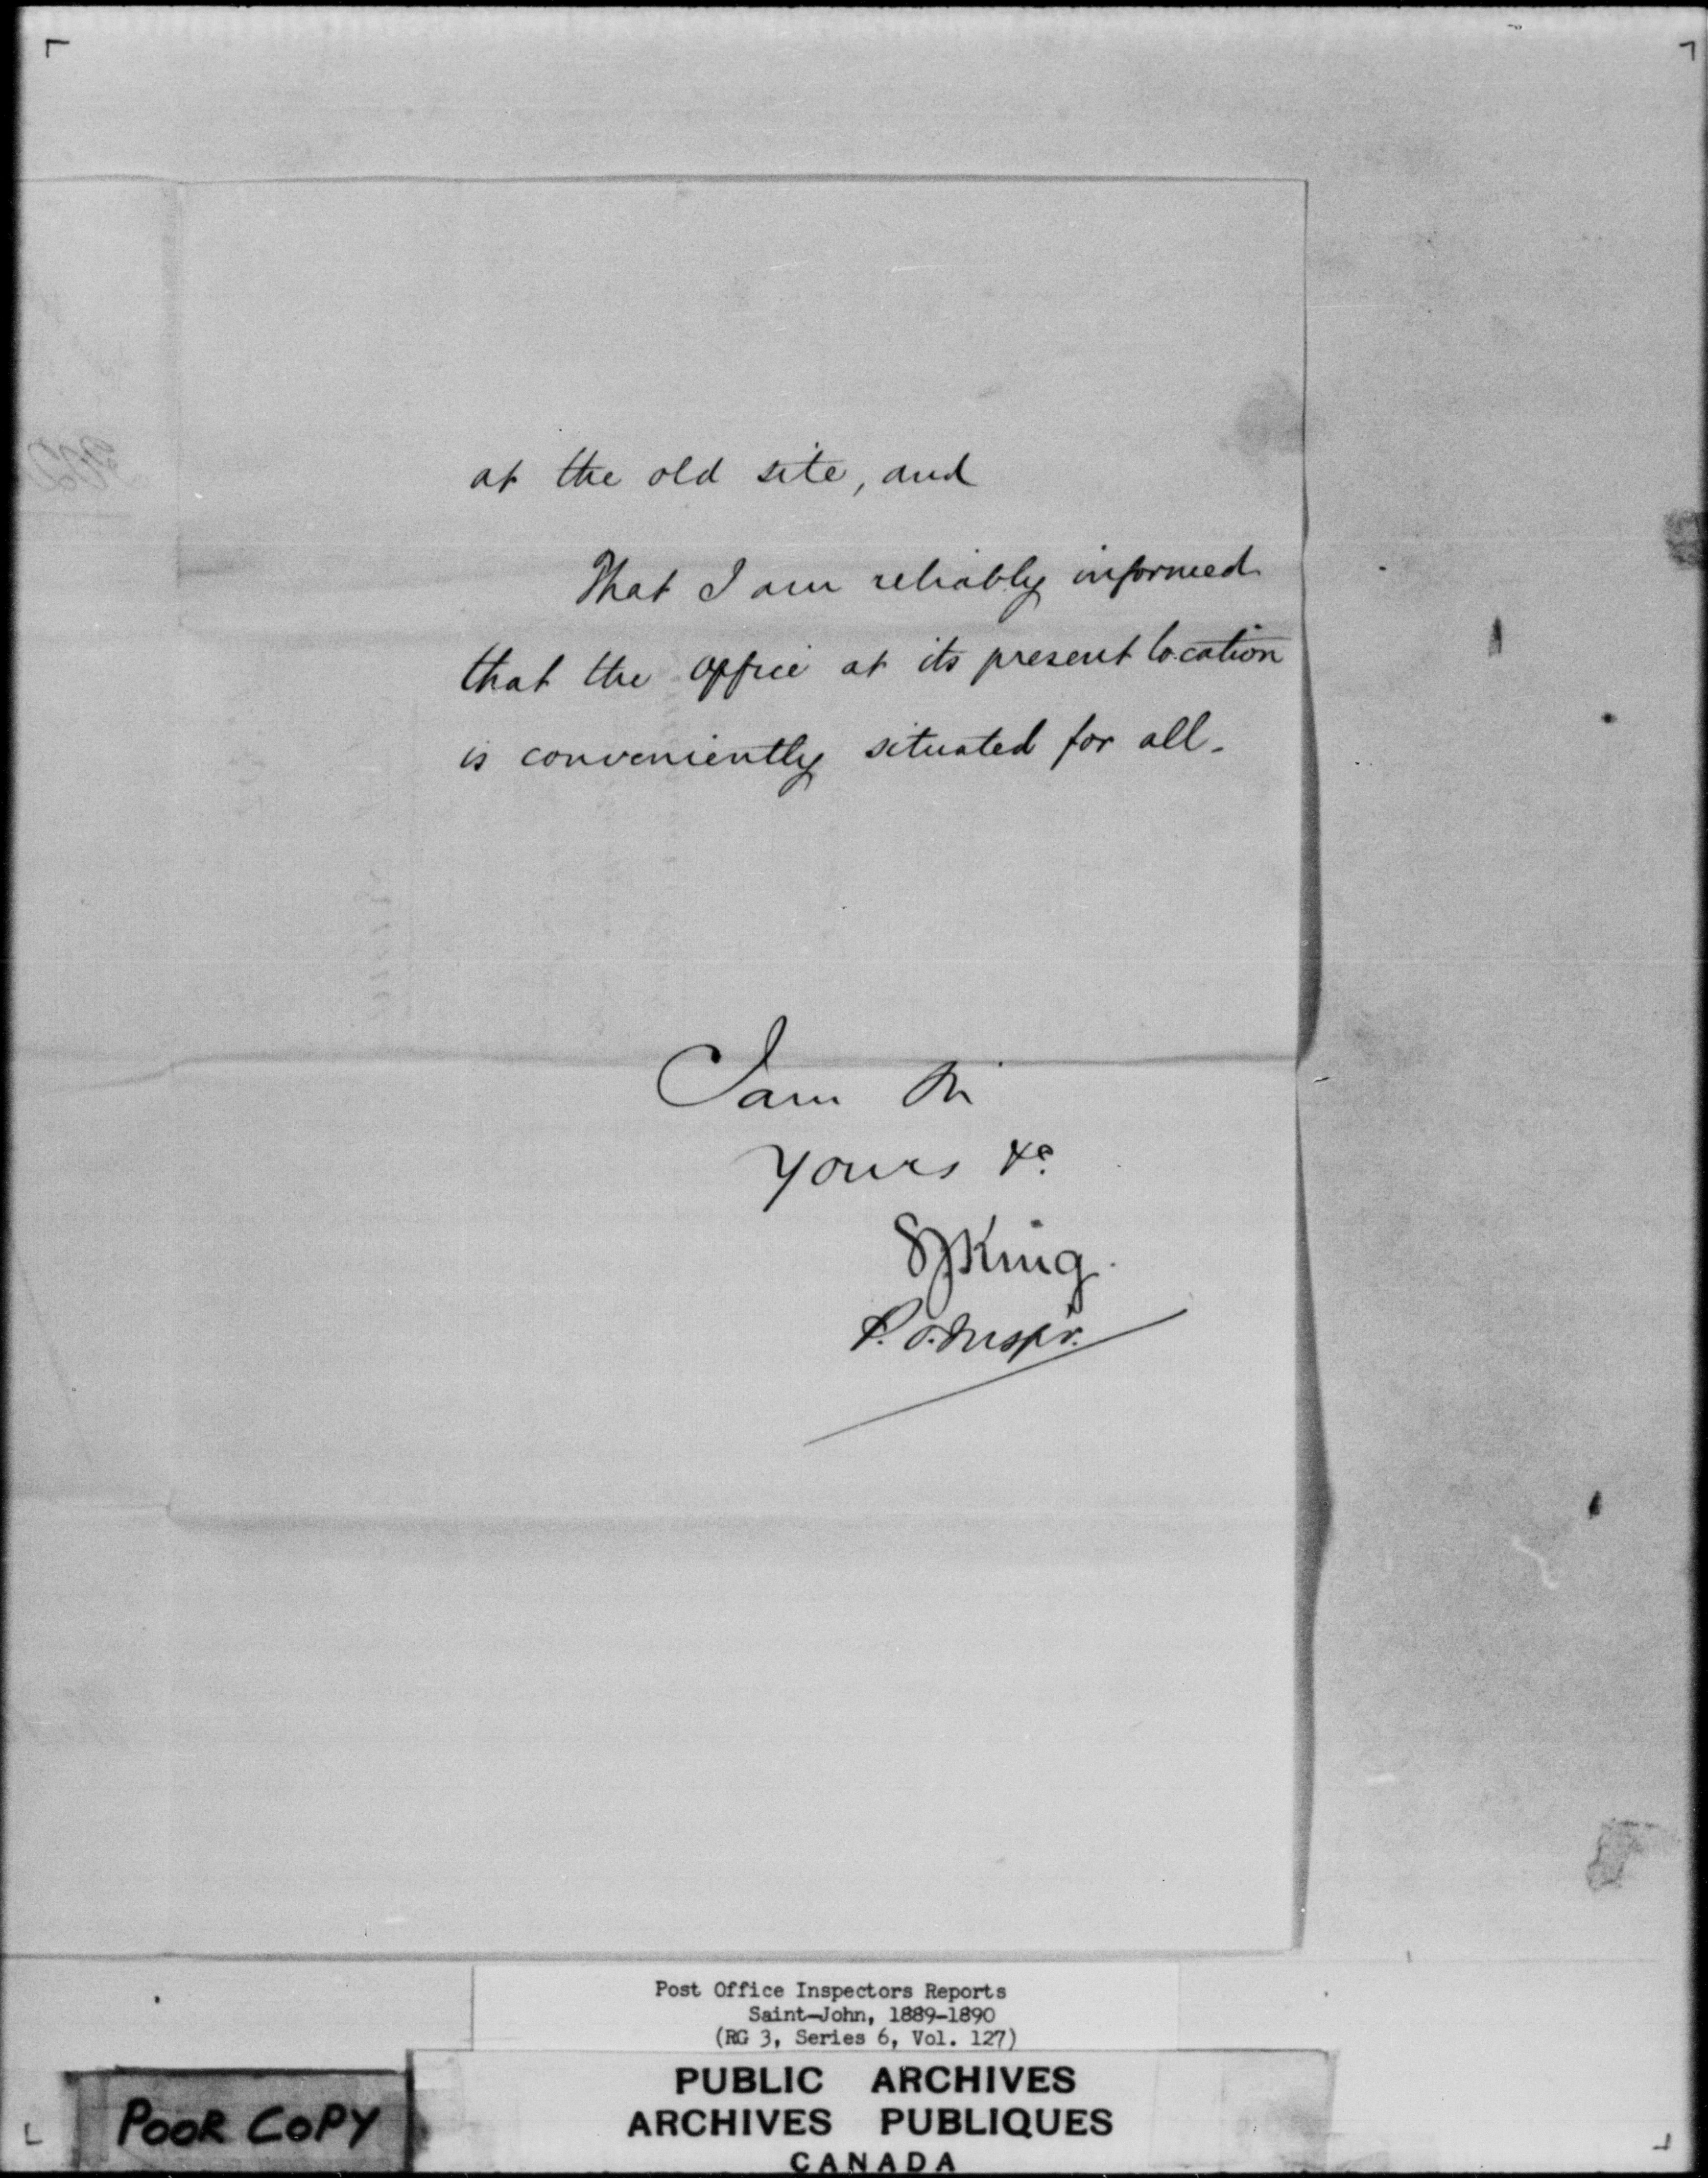 at the old site, and
That I am reliably informed
that the office at its present location
is conveniently situated for all.
I am Sir
Yours &c.
SJKing.
P.O. Inspr.
Post Office Inspectors Reports
Saint-John, 1889-1890
(RG 3, Series 6, Vol. 127)
PUBLIC ARCHIVES
ARCHIVES PUBLIQUES
CANADA
POOR COPY